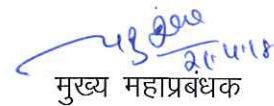 21.4.18
मुख्य महाप्रबंधक